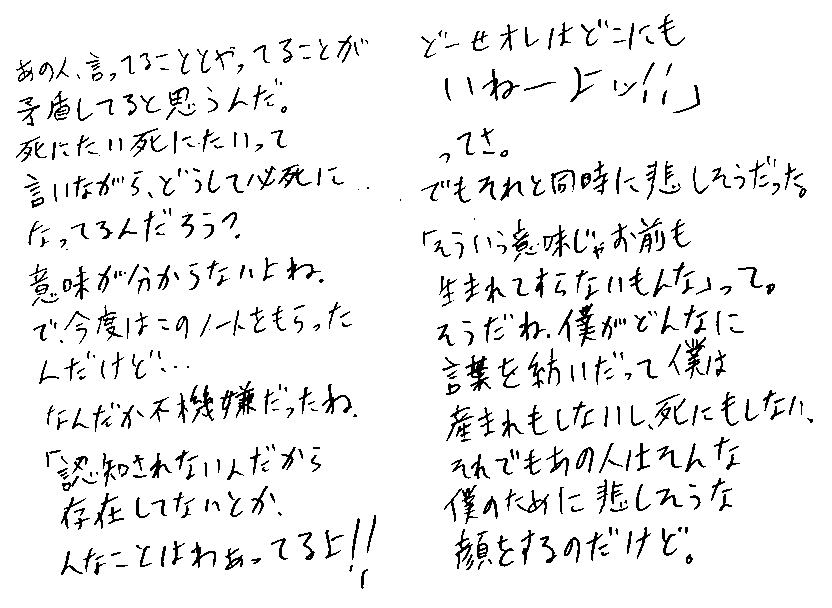 あの人、言ってることとやってることが
矛盾してると思うんだ。
死にたい死にたいって
言いながら、どうして必死に
なってるんだろう?
意味が分からないよね。
で、今度はこのノートをもらった
んだけど…
なんだか不機嫌だったね。
「認知されないんだから
存在してないとか、
んなことはわあってるよ!!
どーせオレはどこにも
いねーよッ!!」
ってさ。
でもそれと同時に悲しそうだった。
「そういう意味じゃお前も
生まれてすらないもんな」って。
そうだね、僕がどんなに
言葉を紡いだって僕は
産まれもしないし、死にもしない、
それでもあの人はそんな
僕のために悲しそうな
顔をするのだけど。